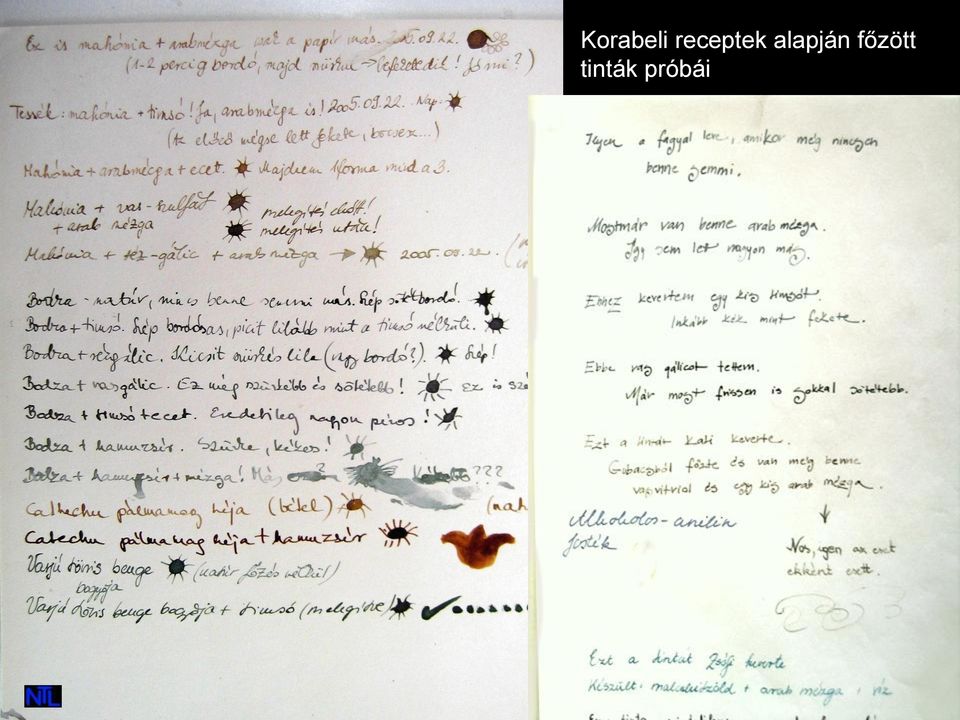 Korabeli receptek alapján főzött
tinták próbái
Ez is mahónia + arabmézga csak a papír más. 2005.09.22.
(1-2 percig bordó, majd szürkül → befeketedik! Jó mi?)
Tessék: mahónia + timsó! Ja, arabmézga is! 2005.09.22. Nap.
(Az előző mégse lett fekete, bocsesz...)
Mahónia + arabmézga + ecet. Majdnem 1forma mind a 3.
Mahónia + vas-szulfát
+ arab mézga
melegítés előtt!
melegítés után!
Mahónia + réz-gálic + arab mézga → 2005.09.22.
Bodza - natúr, nincs benne semmi más. Szép sötétbordó!
Bodza + timsó. Szép bordósas, picit lilább mint a timsó nélküli.
Bodza + rézgálic. Kicsit szürkés lila (vagy bordó?). Szép!
Bodza + vasgálic. Ez még szürkébb és sötétebb! Ez is
Bodza + timsó + ecet. Eredetileg nagyon piros!
Bodza + hamuzsír. Szürke, kékes!
Bodza + hamuzsír + mézga! Más ? Kékebb???
Cathechu pálmamag héja (bétel)
Catechu pálmamag héja + hamuzsír
Varjútövis benge (natúr főzés nélkül)
bogyója
Varjútövis benge bogyója + timsó (melegítve)
Ilyen a fagyal leve, amikor még nincsen
benne semmi.
Mostmár van benne arab mézga.
Így sem lett nagyon más.
Ehhez kevertem egy kis timsót.
Inkább kék mint fekete.
Ebbe vas gálicot tettem.
Már most frissen is sokkal sötétebb.
Ezt a tintát Kati keverte.
Gubacsból főzte és van még benne
vasvitriol és egy kis arab mézga.
Alkoholos-anilin
festék
Nos, igen az eset
ekként esett.
Ezt a tintát Zsófi keverte
Készült: malachitzöld + arab mézga + víz
NTL